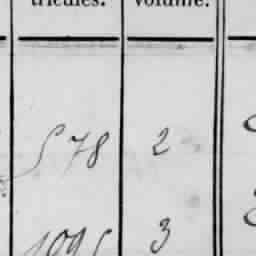 tricules. volume.
578 2
1095 3